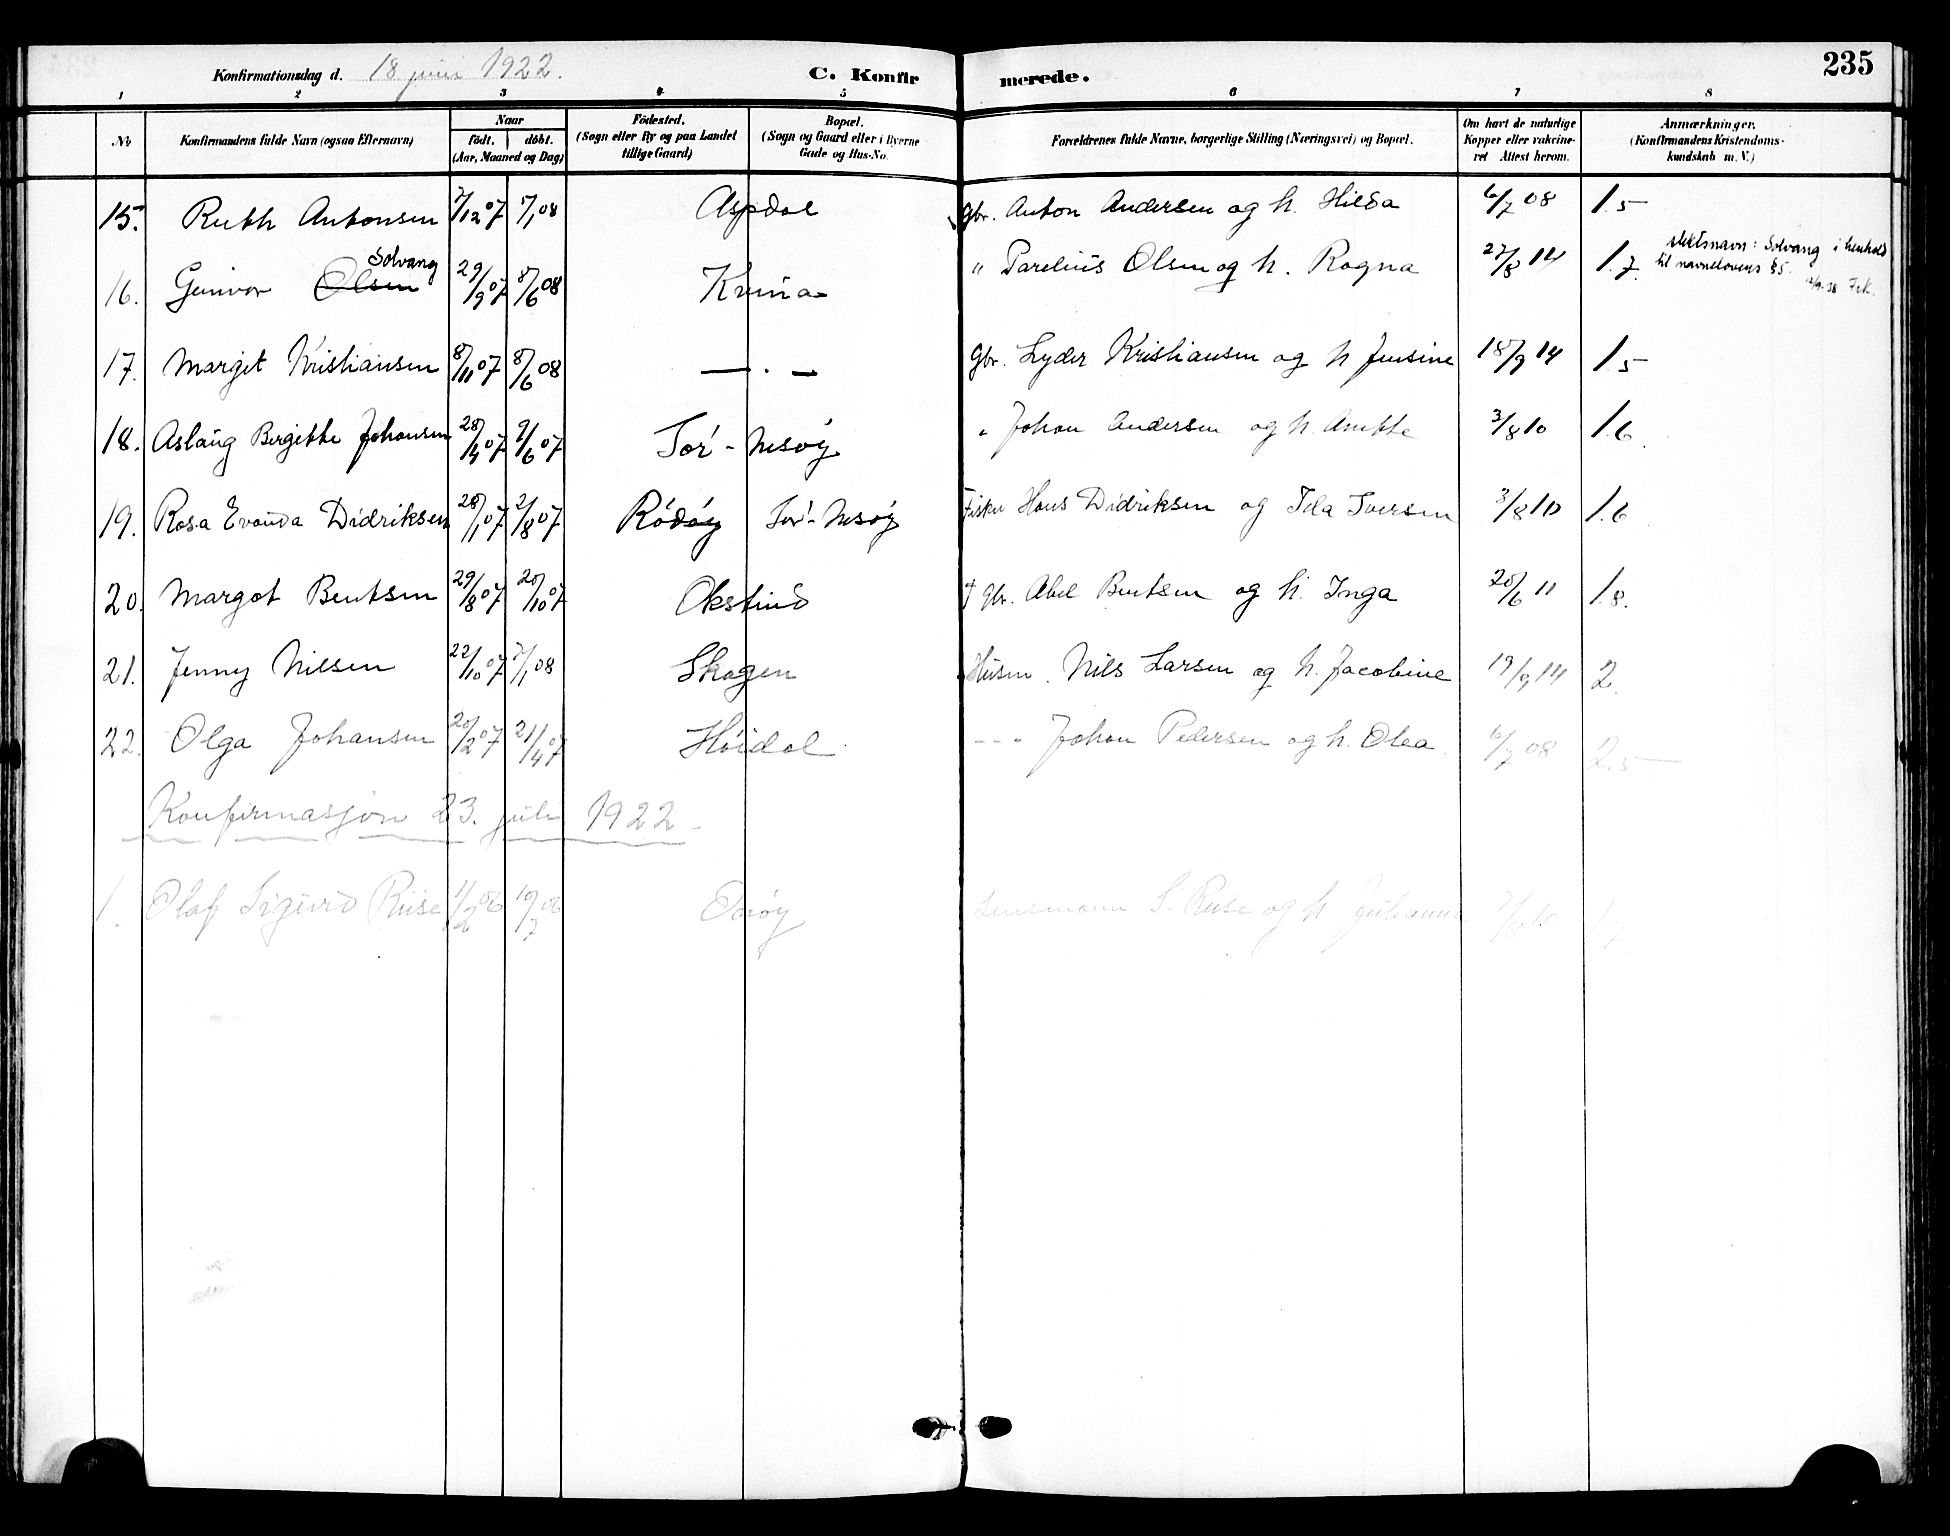 235
Konfirmationsdag d. 18 juni 1922. C. Konfirmerede.
1 2 3 4 5 6 7 8
No Konfirmandens fulde Navn (ogsaa Efternavn) Naar födt. döbt. (Aar, Maaned og Dag) Födested. (Sogn eller By og paa Landet tillige Gaard) Bopæl. (Sogn og Gaard eller i Byerne Gade og Hus-No. Forældrenes fulde Navne, borgerlige Stilling (Næringsvei) og Bopæl. Om havt de naturlige Kopper eller vakcineret Attest herom. Anmærkninger. (Konfirmandens Kristendomskundskab m. V.)
15. Ruth Antonsen 7/12 07 7/1 08 Aspdal gbr. Anton Andersen og h. Hilda 6/7 08 1.5
16. Gunvor Olsen Solvang 29/9 07 8/6 08 Kvina " Parelius Olsen og h. Ragna 27/8 14 1.7. slektsnavn: Solvang i henhold til navnelovens §5.
17. Margit Kristiansen 8/11 07 8/6 08 — . — gbr. Lyder Kristiansen og h Jensine 18/9 14 1.5
18. Aslaug Bergitte Johansen 28/4 07 9/6 07 Sör-Nesöy " Johan Andersen og h. Anette 3/8 10 1.6.
19. Rosa Evanda Didriksen 28/1 07 2/8 07 Rödöy Sör-Nesöy Fisker Hans Didriksen og Ida Iversen 3/8 10 1.6
20. Margot Bentsen 29/8 07 20/10 07 Okstind † gbr. Abel Bentsen og h. Inga 20/6 11 1.8.
21. Jenny Nilsen 22/10 07 7/1 08 Skogen Husm. Nils Larsen og h. Jacobine 19/9 14 2.
22. Olga Johansen 20/2 07 21/4 07 Höidal - - - Johan Pedersen og h. Olea 6/7 08 2.5
Konfirmasjon 23. juli 1922
1. Olaf Sigurd Riise 1/2 06 10/7 06 Onöy Lensmann S. Riise og h